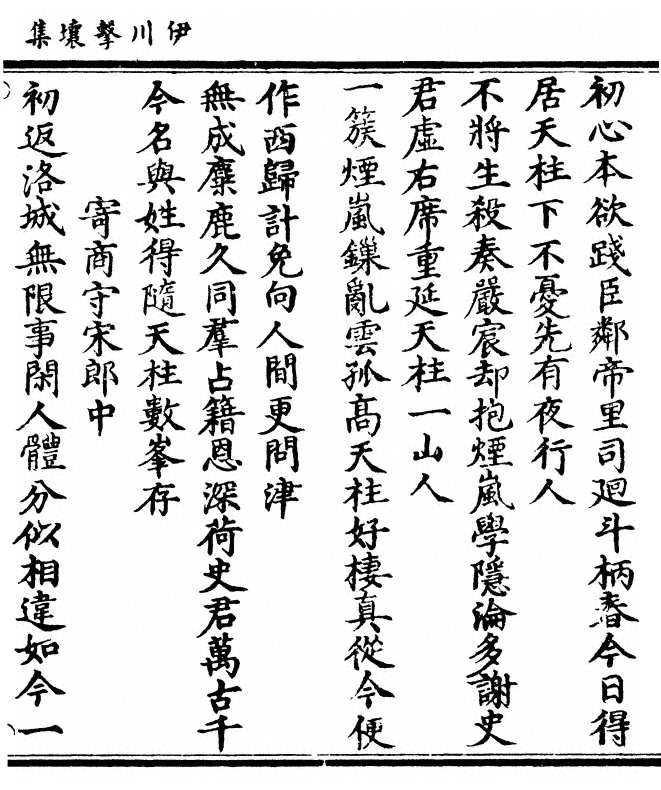 伊川擊壤集
初心本欲踐臣鄰帝里司廻斗柄春今日得
居天柱下不憂先有夜行人
不將生殺奏嚴宸却抱煙嵐學隱淪多謝史
君虛右席重延天柱一山人
一簇煙嵐鏁亂雲孤高天柱好棲真從今便
作西歸計免向人間更問津
無成麋鹿久同羣占籍恩深荷史君萬古千
今名與姓得隨天柱數峯存
寄商守宋郎中
初返洛城無限事閑人體分似相違如今一